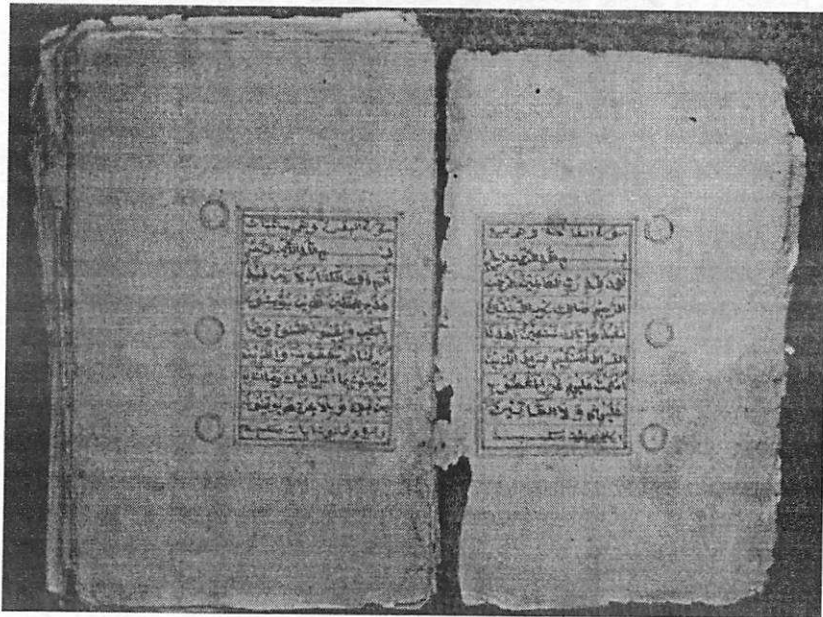 سورة الفاتحة وهي سبع
بسم الله الرحمن الرحيم
الحمد لله رب العالمين الرحمن
الرحيم مالك يوم الدين إياك
نعبد وإياك نستعين اهدنا
الصراط المستقيم صراط الذين
أنعمت عليهم غير المغضوب
عليهم ولا الضالين
سورة البقرة وهي مئتان
بسم الله الرحمن الرحيم
الم ذلك الكتاب لا ريب فيه
هدى للمتقين الذين يؤمنون
بالغيب ويقيمون الصلوة ومما
رزقناهم ينفقون والذين
يؤمنون بما أنزل إليك وما أنزل
من قبلك وبالآخرة هم يوقنون